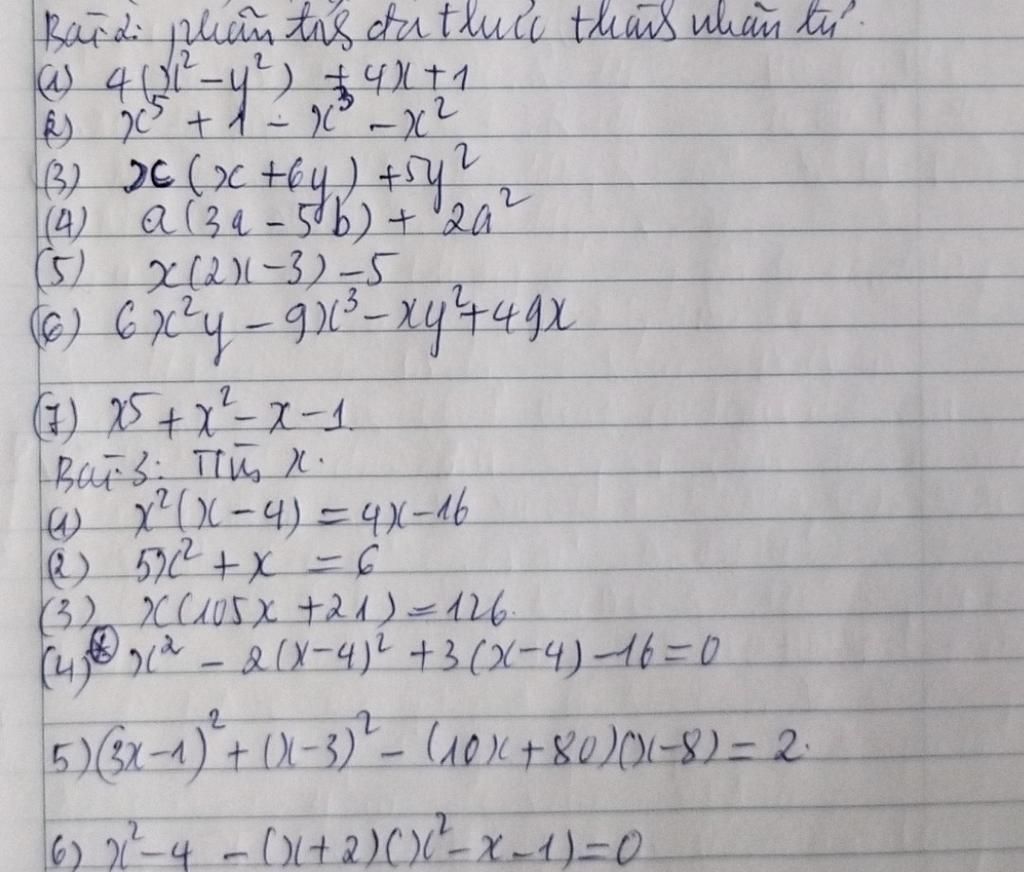 Bài 2: phân tích đa thức thành nhân tử.
(1) 4(x² - y²) + 4x + 1
(2) x⁵ + 1 - x³ - x²
(3) x(x + 6y) + 5y²
(4) a(3a - 5b) + 2a²
(5) x(2x - 3) - 5
(6) 6x²y - 9x³ - xy² + 49x
(7) x5 + x² - x - 1
Bài 3: Tìm x.
(1) x²(x - 4) = 4x - 16
(2) 5x² + x = 6
(3) x(105x + 21) = 126.
(4) x² - 2(x - 4)² + 3(x - 4) - 16 = 0
5) (3x - 1)² + (x - 3)² - (10x + 80)(x - 8) = 2.
6) x² - 4 - (x + 2)(x² - x - 1) = 0